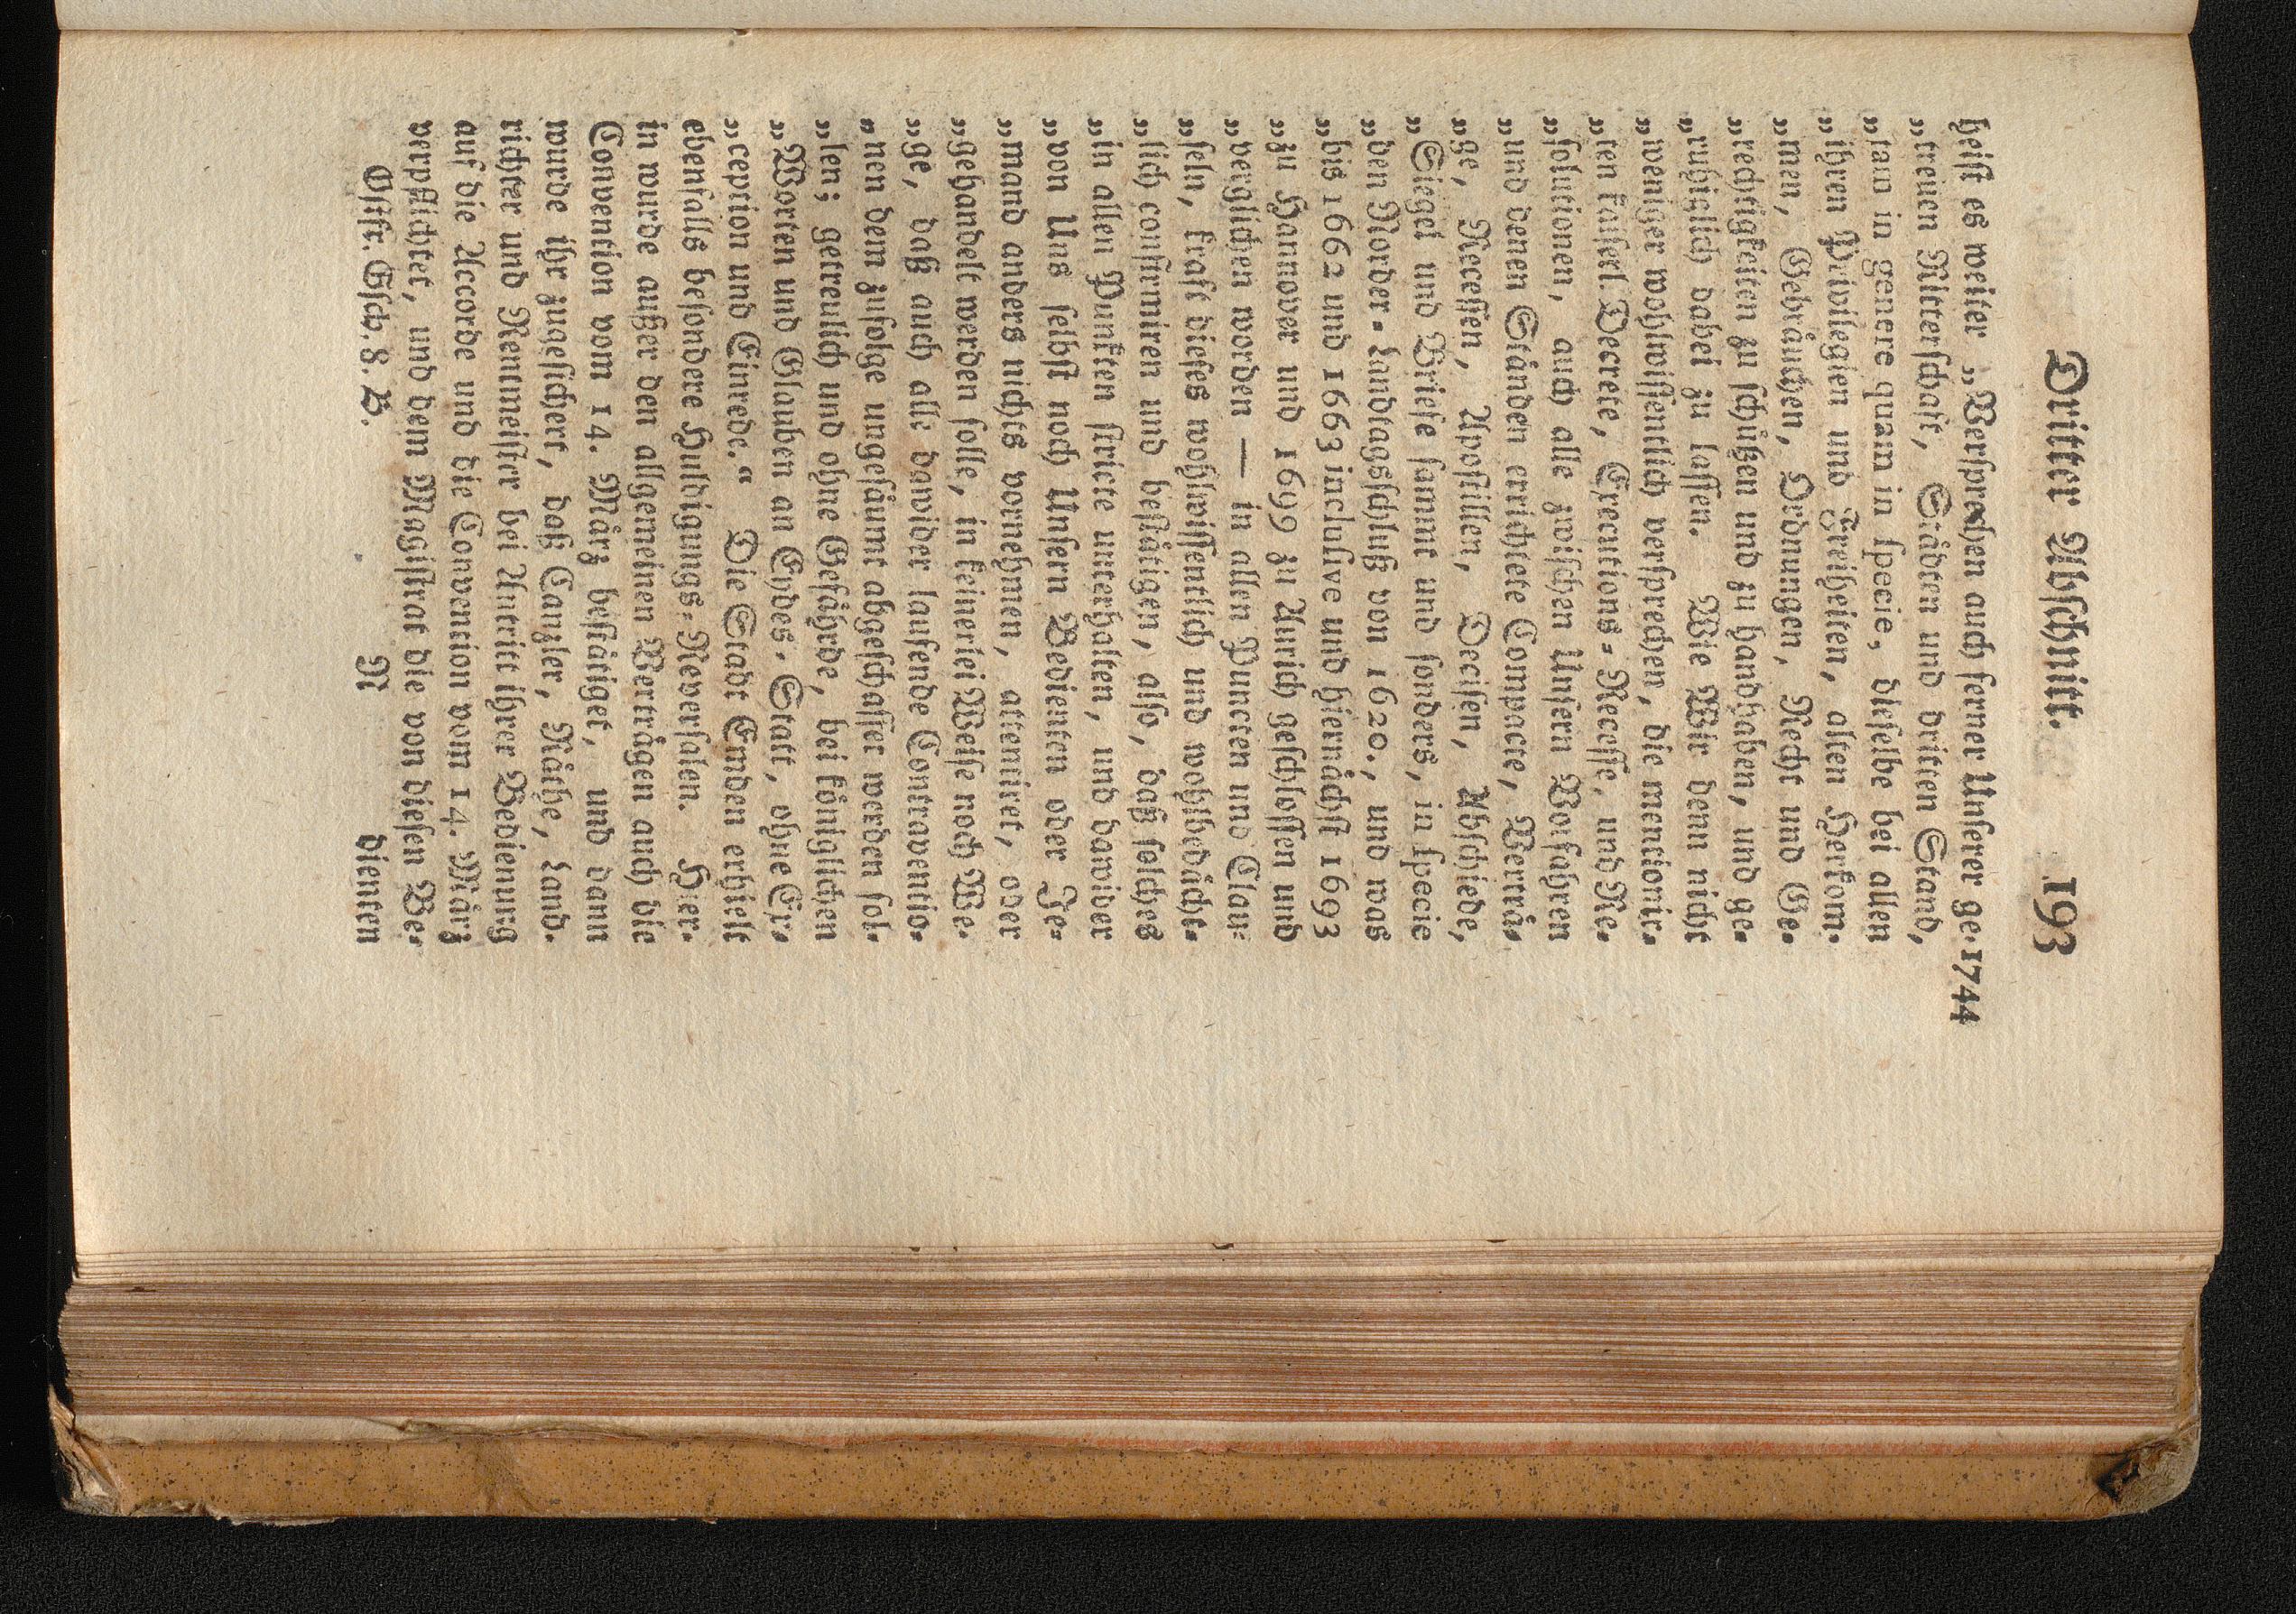 Dritter Abschnitt. 193
heißt es weiter „Versprechen auch ferner Unserer ge- 1744
„treuen Ritterschaft, Städten und dritten Stand,
„tam in genere quam in specie, dieselbe bei allen
„ihren Privilegien und Freiheiten, alten Herkom-
„men, Gebräuchen, Ordnungen, Recht und Ge-
„rechtigkeiten zu schützen und zu handhaben, und ge-
„ruhiglich dabei zu lassen. Wie Wir denn nicht
„weniger wohlwissentlich versprechen, die mentionir-
„ten kaiserl. Decrete, Executions-Recesse, und Re-
„solutionen, auch alle zwischen Unsern Vorfahren
„und denen Ständen errichtete Compacte, Verträ-
„ge, Recessen, Apostillen, Decisen, Abschiede,
„Siegel und Briefe sammt und sonders, in specie
„den Norder-Landtagsschluß von 1620., und was
„bis 1662 und 1663 inclusive und hiernächst 1693
„zu Hannover und 1699 zu Aurich geschlossen und
„verglichen worden — in allen Puncten und Clau-
„seln, kraft dieses wohlwissentlich und wohlbedächt-
„lich confirmiren und bestätigen, also, daß solches
„in allen Punkten stricte unterhalten, und dawider
„von Uns selbst noch Unsern Bedienten oder Je-
„mand anders nichts vornehmen, attentiret, oder
„gehandelt werden solle, in keinerlei Weise noch We-
„ge, daß auch alle dawider laufende Contraventio-
„nen dem zufolge ungesäumt abgeschaffet werden sol-
„len; getreulich und ohne Gefährde, bei königlichen
„Worten und Glauben an Eydes-Statt, ohne Ex-
„ception und Einrede.“ Die Stadt Emden erhielt
ebenfalls besondere Huldigungs-Reversalen. Hier-
in wurde außer den allgemeinen Verträgen auch die
Convention vom 14. März bestätiget, und dann
wurde ihr zugesichert, daß Canzler, Räthe, Land-
richter und Rentmeister bei Antritt ihrer Bedienung
auf die Accorde und die Convention vom 14. März
verpflichtet, und dem Magistrat die von diesen Be-
Ostfr. Gesch. 8. B. N dienten